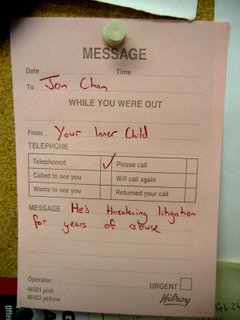 MESSAGE
Date Time
To Jon Chan
WHILE YOU WERE OUT
From Your Inner Child
TELEPHONE
Telephoned ✓ Please call
Called to see you Will call again
Wants to see you Returned your call
MESSAGE He's threatening litigation
for years of abuse
Operator
46501 pink
46502 yellow
URGENT
Hilroy